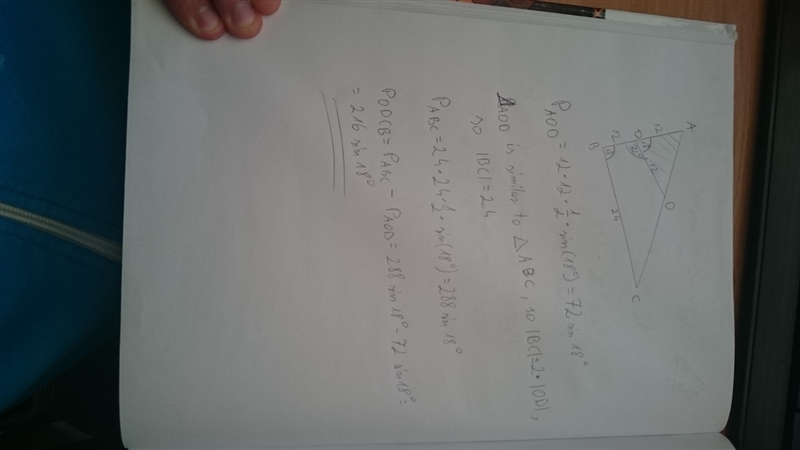 A
12
O
12
D
12
B
24
C
P_AOD = 12·12·1/2·sin(18°) = 72 sin 18°
△AOD is similar to △ABC, so |BC| = 2·|OD|,
so |BC| = 24
P_ABC = 24·24·1/2·sin(18°) = 288 sin 18°
P_ODCB = P_ABC - P_AOD = 288 sin 18° - 72 sin 18° =
= 216 sin 18°